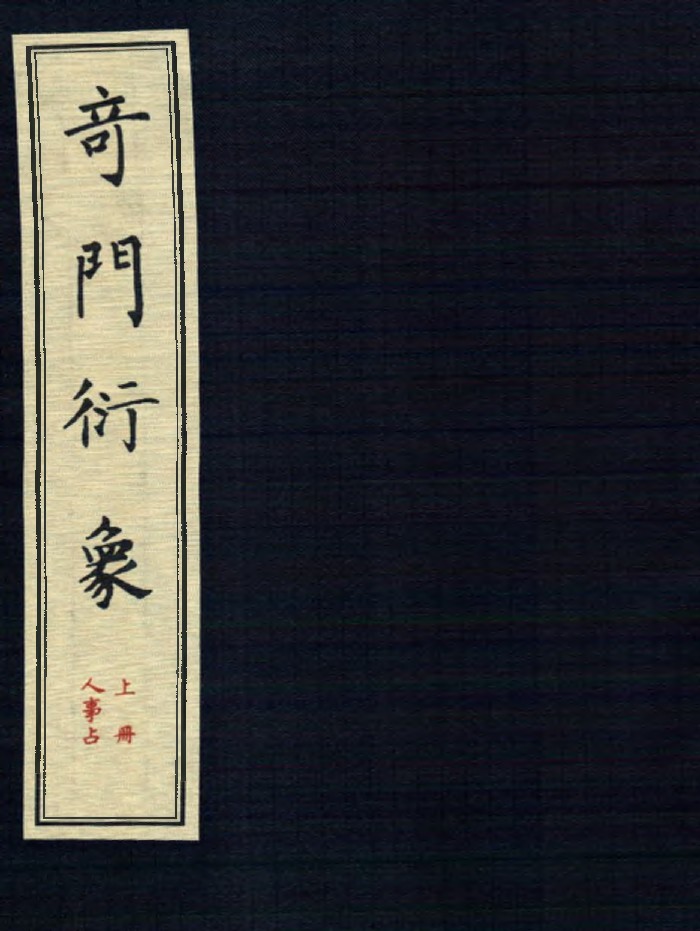 奇門衍象
上冊
人事占